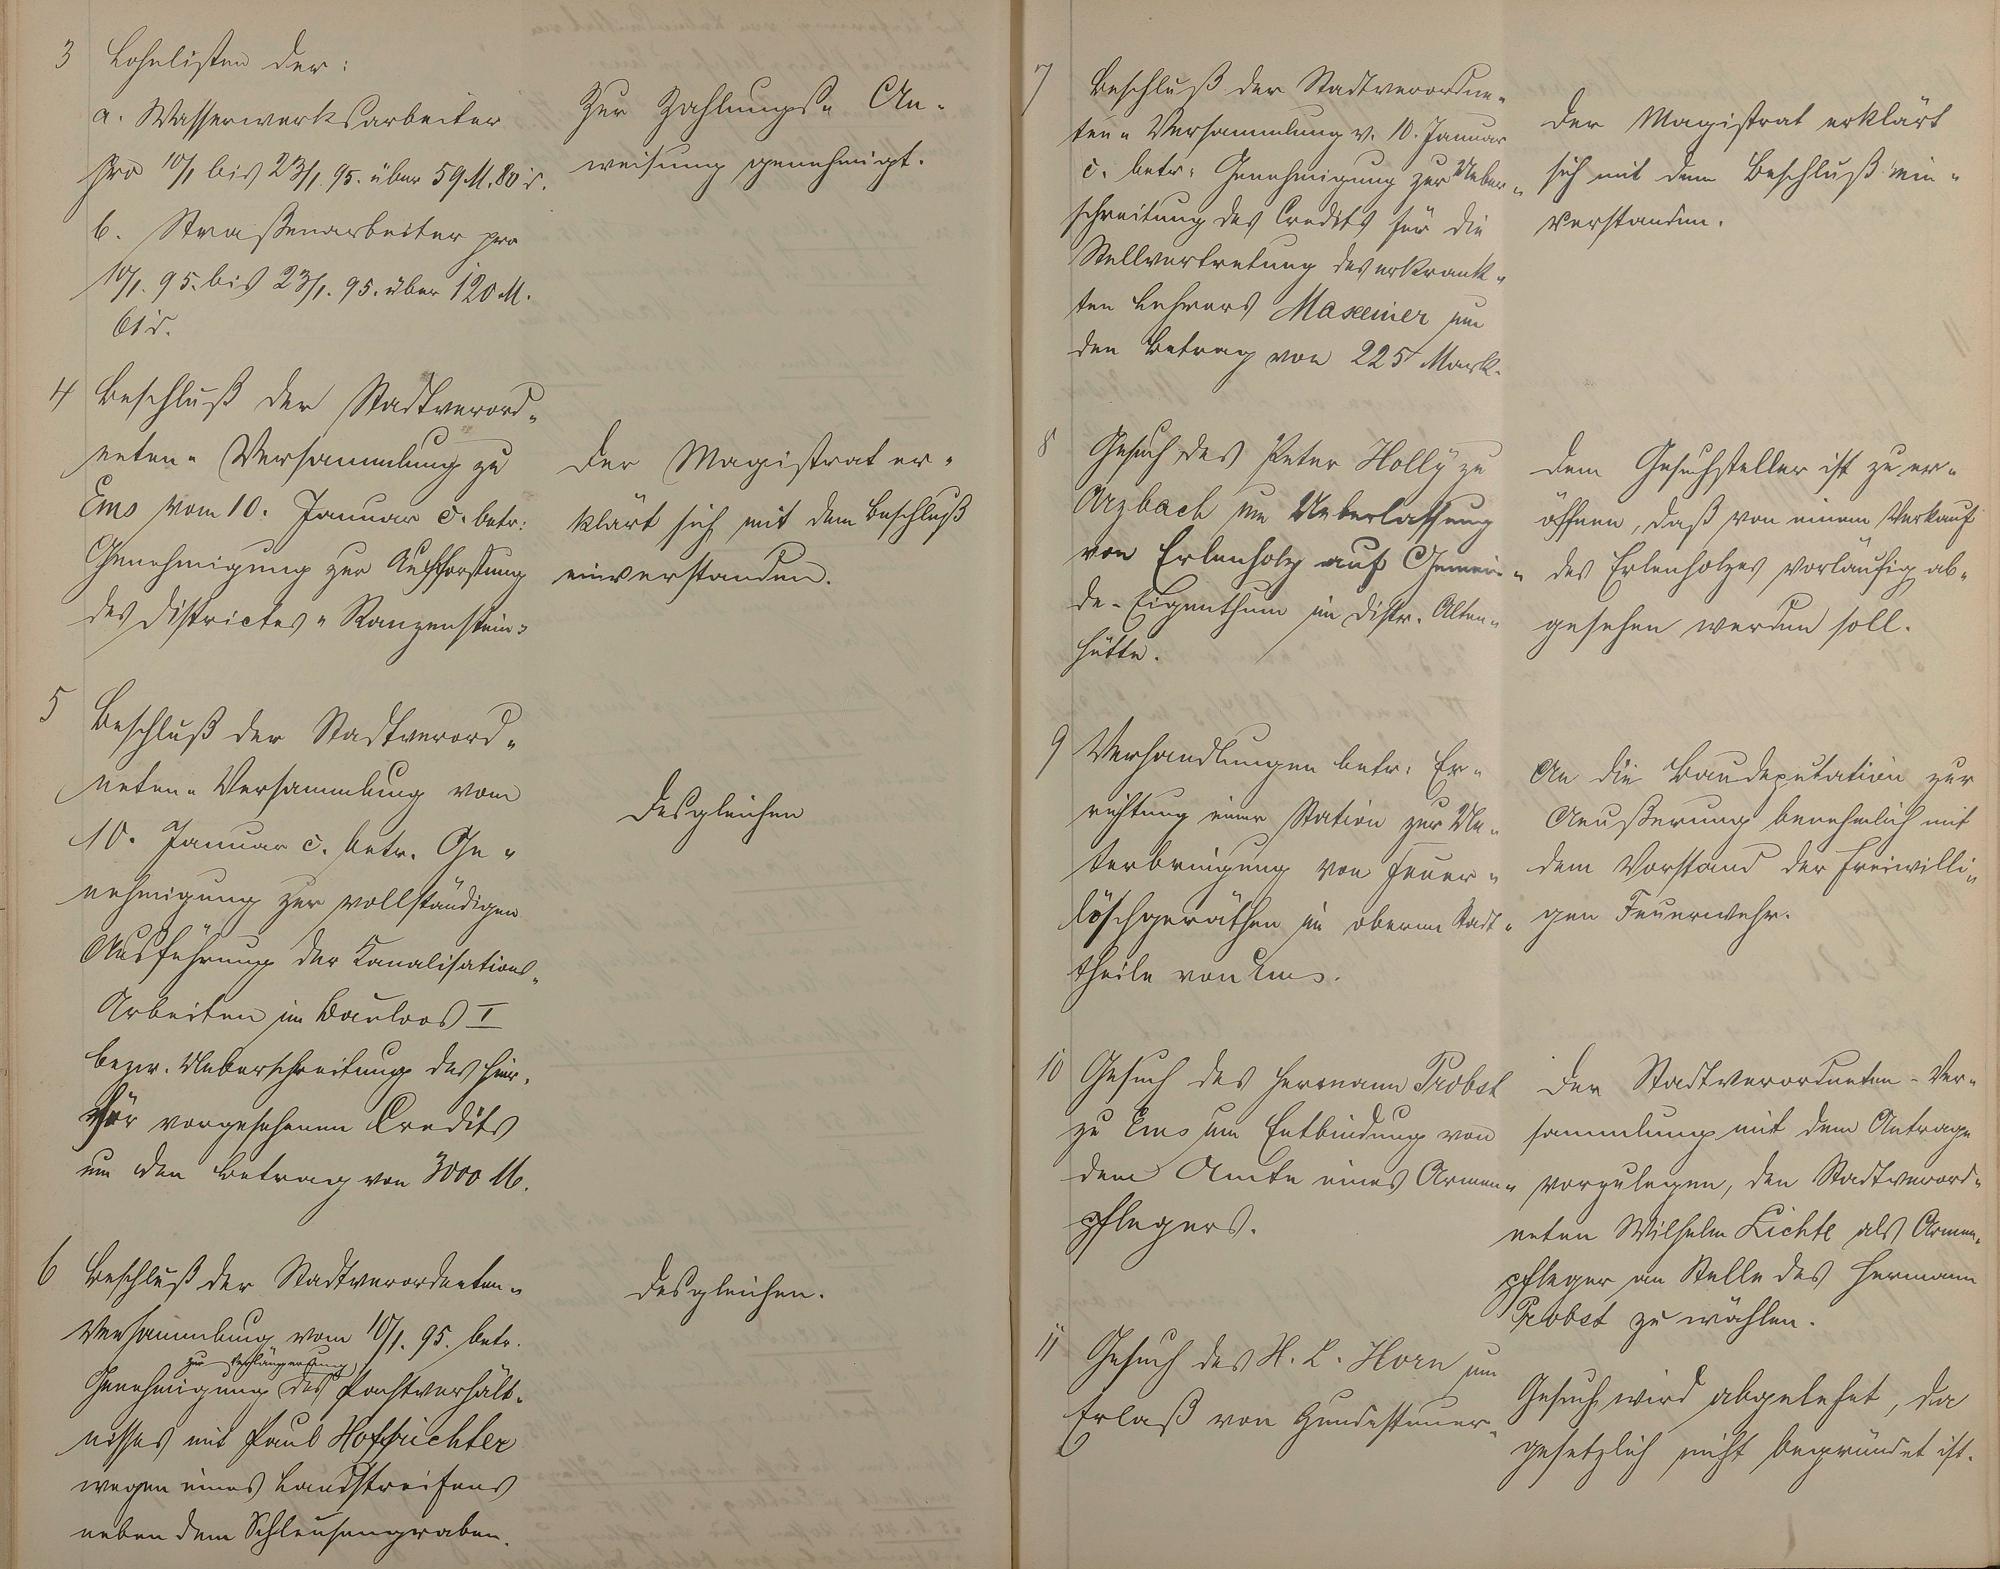 3 Lohnlisten der:
a. Wasserwerksarbeiter
pro 10/1 bis 23/1. 95. über 59 M. 80 d.
b. Straßenarbeiter pro
10/1. 95. bis 23/1. 95. über 120 M.
61 d.
Zur Zahlungs- An-
weisung genehmigt.
4 Beschluß der Stadtverord-
neten- Versammlung zu
Ems vom 10. Januar c. betr:
Genehmigung zur Aufforstung
des Districtes "Ranzenstein"
Der Magistrat er-
klärt sich mit dem Beschluß
einverstanden.
5 Beschluß der Stadtverord-
neten- Versammlung vom
10. Januar c. betr. Ge-
nehmigung zur vollständigen
Ausführung der Kanalisations-
Arbeiten im Bauloos I
bezw. Ueberschreitung des hier-
für vorgesehenen Credits
um den Betrag von 3000 M.
Desgleichen
6 Beschluß der Stadtverordneten-
Versammlung vom 10/1. 95. betr.
zur Verlängerung
Genehmigung des Pachtverhält-
nisses mit Paul Hoffrichter
wegen eines Landstreifens
neben dem Schleusengraben.
Desgleichen.
7 Beschluß der Stadtverordne-
ten- Versammlung v. 10. Januar
c. betr. Genehmigung zur Ueber-
schreitung des Credits für die
Stellvertretung des erkrank-
ten Lehrers Maxeiner um
den Betrag von 225 Mark.
Der Magistrat erklärt
sich mit dem Beschluß ein-
verstanden.
8 Gesuch des Peter Holly zu
Arzbach um Ueberlassung
von Erlenholz auf Gemein-
de-Eigenthum im Distr. Alten-
hütte.
Dem Gesuchsteller ist zu er-
öffnen, daß von einem Verkauf
des Erlenholzes vorläufig ab-
gesehen werden soll.
9 Verhandlungen betr. Er-
richtung einer Station zur Un-
terbringung von Feuer-
löschgeräthen im oberen Stadt-
theile von Ems.
An die Baudeputation zur
Aeußerung benehmlich mit
dem Vorstand der freiwilli-
gen Feuerwehr.
10 Gesuch des Hermann Probst
zu Ems um Entbindung von
dem Amte eines Armen-
pflegers.
Der Stadtverordneten-Ver-
sammlung mit dem Antrage
vorzulegen, den Stadtverord-
neten Wilhelm Lichte als Armen-
pfleger an Stelle des Hermann
Probst zu wählen.
11 Gesuch des H. L. Horn um
Erlaß von Hundesteuer.
Gesuch wird abgelehnt, da
gesetzlich nicht begründet ist.